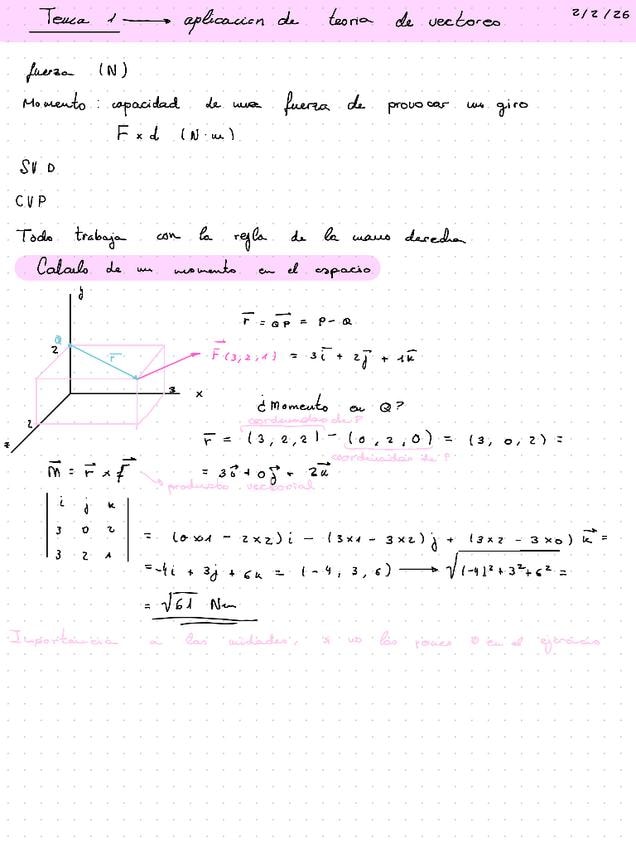 Tema 1 → aplicacion de teoria de vectores 2/2/26
fuerza (N)
Momento: capacidad de una fuerza de provocar un giro
F x d (N·m)
SVD
CVP
Todo trabaja con la regla de la mano derecha
Calculo de un momento en el espacio
y
r = QP = P - Q
Q
2
r
F (3,2,1) = 3i + 2j + 1k
3
x
¿Momento en Q?
2
z
coordenadas de P
r = (3,2,2) - (0,2,0) = (3,0,2) =
coordenadas de P
m = r x F
= 3i + 0j + 2k
producto vectorial
i j k
3 0 2
3 2 1
= (0x1 - 2x2) i - (3x1 - 3x2) j + (3x2 - 3x0) k =
= -4i + 3j + 6k = (-4, 3, 6) → √(-4)²+3²+6² =
= √61 Nm
Importancia a las unidades, x no las pones 0 en el ejercicio